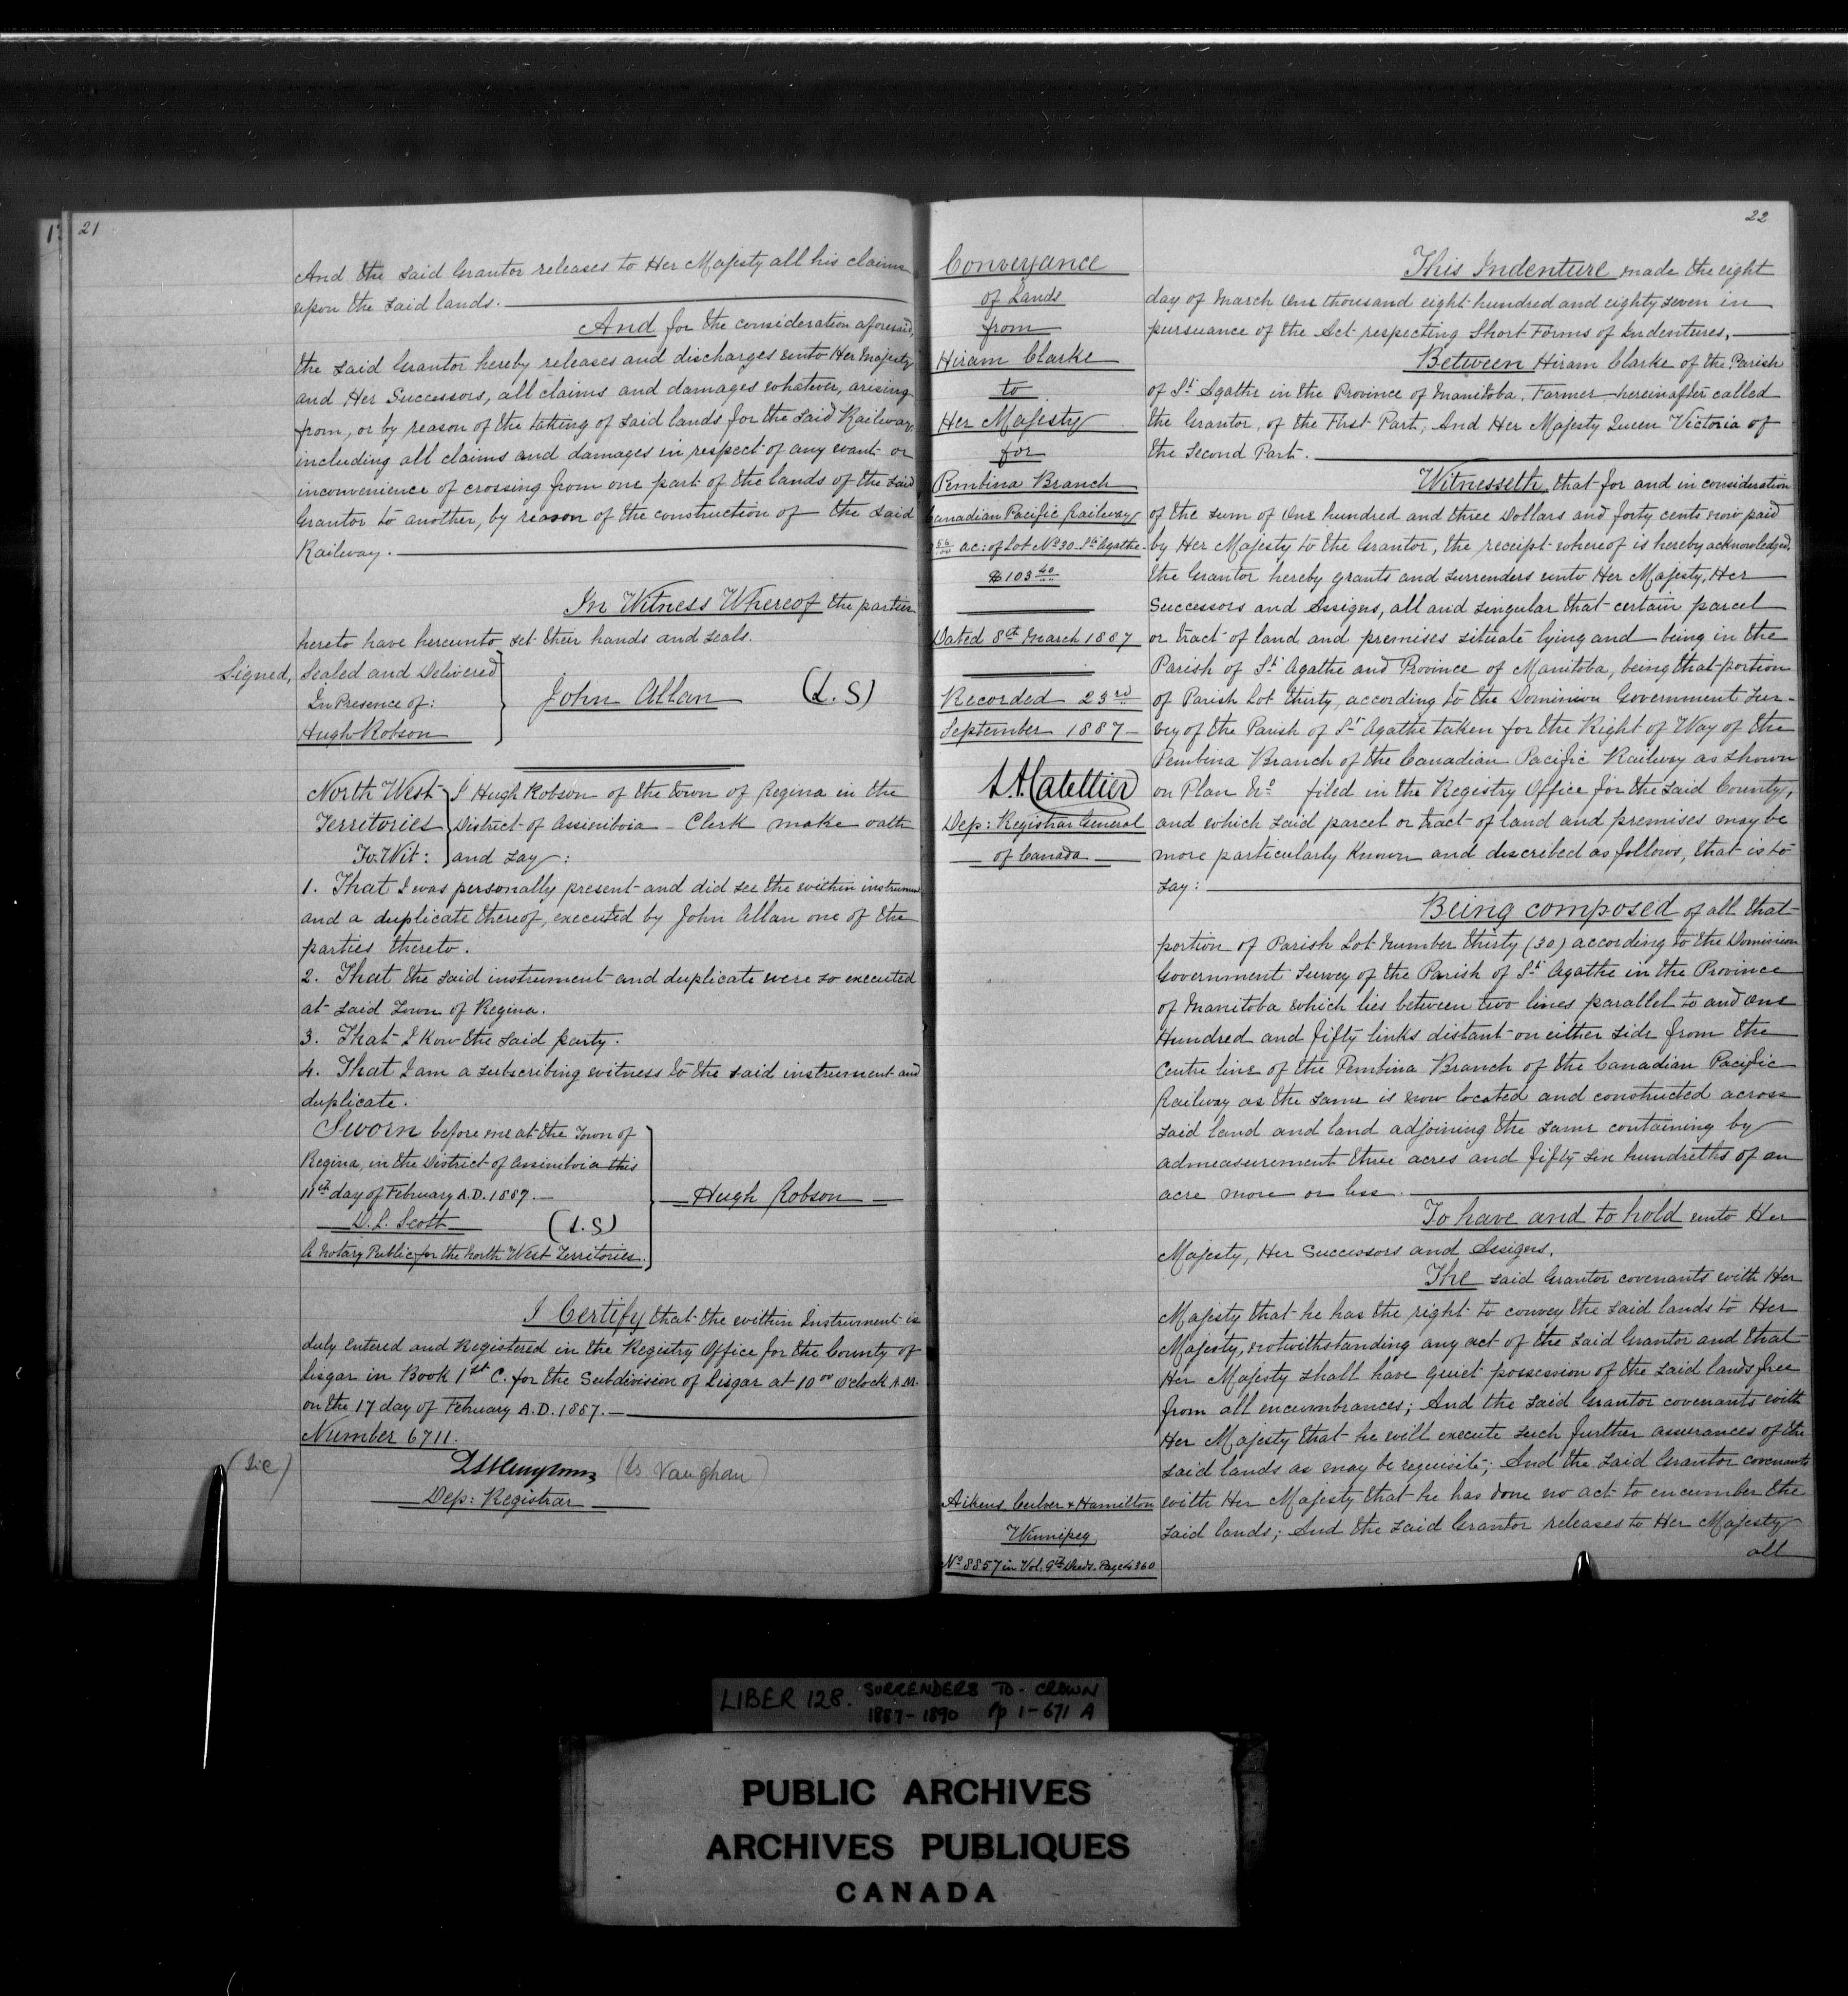 21
And the said Grantor releases to Her Majesty all his claims
upon the said lands.
And for the consideration aforesaid,
the said Grantor hereby releases and discharges unto Her Majesty
and Her Successors, all claims and damages whatever, arising
from, or by reason of the taking of said lands for the said Railway,
including all claims and damages in respect of any want or
inconvenience of crossing from one part of the lands of the said
Grantor to another, by reason of the construction of the said
Railway.
In Witness Whereof the parties
hereto have hereunto set their hands and seals.
Signed, Sealed and Delivered
In Presence of:
Hugh Robson
John Allan (L.S)
North West
Territories
To Wit:
I Hugh Robson of the town of Regina in the
District of Assiniboia - Clerk make oath
and say:
1. That I was personally present and did see the within instrument
and a duplicate thereof, executed by John Allan one of the
parties thereto.
2. That the said instrument and duplicate were so executed
at said Town of Regina.
3. That I know the said party.
4. That I am a subscribing witness to the said instrument and
duplicate.
Sworn before me at the Town of
Regina, in the District of Assiniboia this
11th day of February A.D. 1887.
D. L. Scott (L.S)
A Notary Public for the North West Territories.
Hugh Robson
I Certify that the within Instrument is
duly Entered and Registered in the Registry Office for the County of
Lisgar in Book 1st C. for the Subdivision of Lisgar at 10 00 O'clock A.M.
on the 17 day of February A.D. 1887.
Number 6711.
(Sic) (Is Vaughan)
Dep: Registrar
22
Conveyance
of Lands
from
Hiram Clarke
to
Her Majesty
for
Pembina Branch
Canadian Pacific Railway
56/00 ac: of Lot No 30 Ste Agathe
$103 40
Dated 8th March 1887
Recorded 23rd
September 1887
L.A. Catellier
Dep: Registrar General
of Canada
Aikens Culver & Hamilton
Winnipeg
No 8857 in Vol. 9th Deeds. Page 4360
This Indenture made the eight
day of March One thousand eight hundred and eighty seven in
pursuance of the Act respecting Short Forms of Indentures,
Between Hiram Clarke of the Parish
of Ste Agathe in the Province of Manitoba, Farmer hereinafter called
the Grantor, of the First Part, And Her Majesty Queen Victoria of
the Second Part.
Witnesseth, that for and in consideration
of the sum of One hundred and three Dollars and forty cents now paid
by Her Majesty to the Grantor, the receipt whereof is hereby acknowledged,
the Grantor hereby grants and surrenders unto Her Majesty, Her
Successors and Assigns, all and singular that certain parcel
or tract of land and premises situate lying and being in the
Parish of Ste Agathe and Province of Manitoba, being that portion
of Parish Lot thirty, according to the Dominion Government Sur-
vey of the Parish of Ste Agathe taken for the Right of Way of the
Pembina Branch of the Canadian Pacific Railway as shown
on Plan No filed in the Registry Office for the said County,
and which said parcel or tract of land and premises may be
more particularly known and described as follows, that is to
say:
Being composed of all that
portion of Parish Lot Number thirty (30) according to the Dominion
Government Survey of the Parish of Ste Agathe in the Province
of Manitoba which lies between two lines parallel to and One
Hundred and fifty links distant on either side from the
Centre line of the Pembina Branch of the Canadian Pacific
Railway as the same is now located and constructed across
said land and land adjoining the same containing by
admeasurement three acres and fifty six hundredths of an
acre more or less.
To have and to hold unto Her
Majesty, Her Successors and Assigns.
The said Grantor covenants with Her
Majesty that he has the right to convey the said lands to Her
Majesty, notwithstanding any act of the said Grantor and that
Her Majesty shall have quiet possession of the said lands free
from all encumbrances; And the said Grantor covenants with
Her Majesty that he will execute such further assurances of the
said lands as may be requisite; And the said Grantor covenants
with Her Majesty that he has done no act to encumber the
said lands; And the said Grantor releases to Her Majesty
all
LIBER 128. SURRENDERS TO CROWN
1887-1890 Pp 1-671 A
PUBLIC ARCHIVES
ARCHIVES PUBLIQUES
CANADA